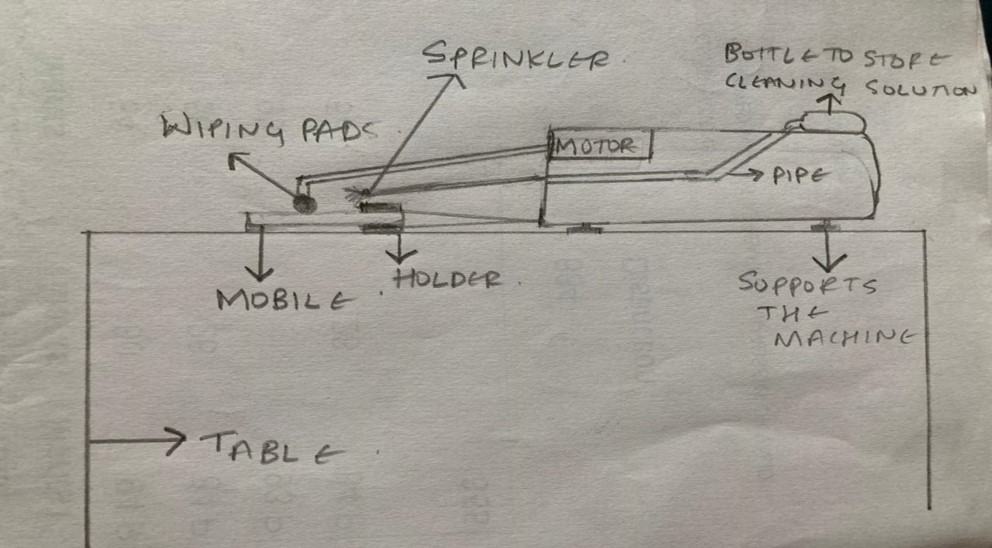 SPRINKLER.
BOTTLE TO STORE
CLEANING SOLUTION
WIPING PADS
MOTOR
PIPE
MOBILE.
HOLDER.
SUPPORTS
THE
MACHINE
TABLE.